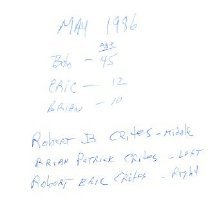 MAY 1986
age
Bob - 45
ERIC - 12
BRIAN - 10
Robert B Crites - Middle
BRIAN PATRICK Crites - LEFT
Robert ERIC Crites - Right